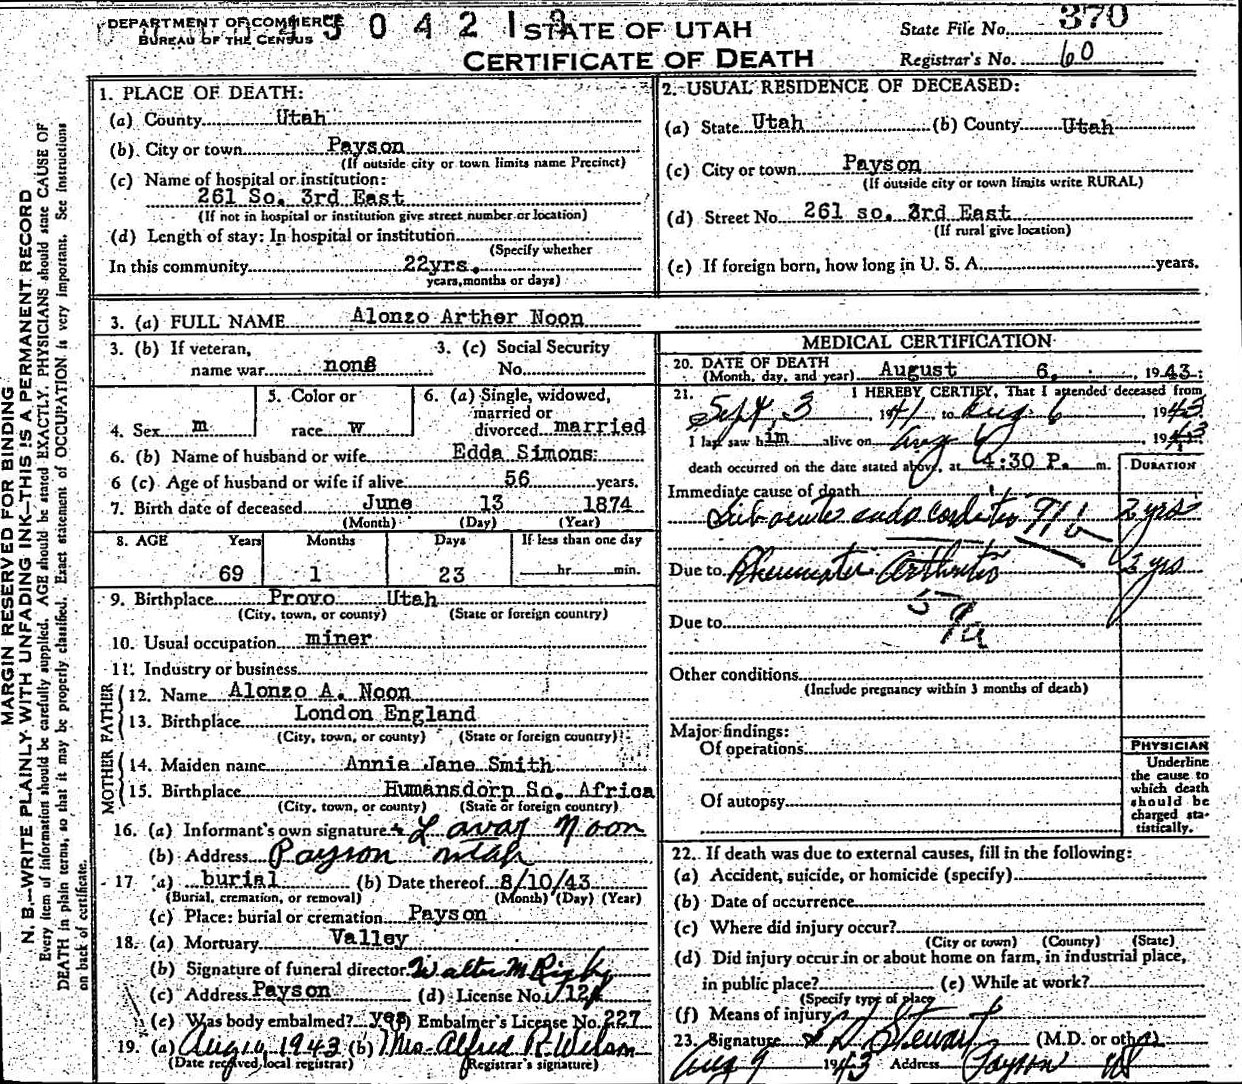 DEPARTMENT OF COMMERCE
BUREAU OF THE CENSUS
0 4 2 1
STATE OF UTAH
CERTIFICATE OF DEATH
State File No. 370
Registrar's No. 60
MARGIN RESERVED FOR BINDING
N. B.—WRITE PLAINLY WITH UNFADING INK—THIS IS A PERMANENT RECORD
Every item of information should be carefully supplied. AGE should be stated EXACTLY. PHYSICIANS should state CAUSE OF
DEATH in plain terms, so that it may be properly classified. Exact statement of OCCUPATION is very important. See instructions
on back of certificate.
1. PLACE OF DEATH:
(a) County Utah
(b) City or town Payson
(If outside city or town limits name Precinct)
(c) Name of hospital or institution:
261 So. 3rd East
(If not in hospital or institution give street number or location)
(d) Length of stay: In hospital or institution
(Specify whether
In this community 22yrs.
years, months or days)
2. USUAL RESIDENCE OF DECEASED:
(a) State Utah (b) County Utah
(c) City or town Payson
(If outside city or town limits write RURAL)
(d) Street No. 261 so. 3rd East
(If rural give location)
(e) If foreign born, how long in U. S. A. years.
3. (a) FULL NAME Alonzo Arther Noon
3. (b) If veteran, name war none
3. (c) Social Security No.
4. Sex m
5. Color or race W
6. (a) Single, widowed, married or divorced married
6. (b) Name of husband or wife Edda Simons
6 (c) Age of husband or wife if alive 56 years.
7. Birth date of deceased June 13 1874
(Month) (Day) (Year)
8. AGE Years Months Days If less than one day
69 1 23 hr. min.
9. Birthplace Provo Utah
(City, town, or county) (State or foreign country)
10. Usual occupation miner
11. Industry or business
FATHER
12. Name Alonzo A. Noon
13. Birthplace London England
(City, town, or county) (State or foreign country)
MOTHER
14. Maiden name Annie Jane Smith
15. Birthplace Humansdorp So. Africa
(City, town, or county) (State or foreign country)
16. (a) Informant's own signature Lavar Noon
(b) Address Payson Utah
17 (a) burial (b) Date thereof 8/10/43
(Burial, cremation, or removal) (Month) (Day) (Year)
(c) Place: burial or cremation Payson
18. (a) Mortuary Valley
(b) Signature of funeral director Walter M Rigby
(c) Address Payson (d) License No.
(e) Was body embalmed? yes (f) Embalmer's License No. 227
19. (a) Aug 10 1943 (b) Mrs. Alfred R. Wilson
(Date received local registrar) (Registrar's signature)
MEDICAL CERTIFICATION
20. DATE OF DEATH
(Month, day, and year) August 6, 1943
21. I HEREBY CERTIFY, That I attended deceased from
Sept 3 1941 to Aug 6 1943
I last saw him alive on Aug 6 1943
death occurred on the date stated above, at 4:30 P. m.
DURATION
Immediate cause of death
Sub-acute endocarditis 91b 2 yrs
Due to Rheumatic Arthritis 2 yrs
59a
Due to
Other conditions
(Include pregnancy within 3 months of death)
Major findings:
Of operations
Of autopsy
PHYSICIAN
Underline
the cause to
which death
should be
charged sta-
tistically.
22. If death was due to external causes, fill in the following:
(a) Accident, suicide, or homicide (specify)
(b) Date of occurrence
(c) Where did injury occur?
(City or town) (County) (State)
(d) Did injury occur in or about home on farm, in industrial place,
in public place? (e) While at work?
(Specify type of place)
(f) Means of injury
23. Signature Stewart (M.D. or other)
Aug 9 1943 Address Payson Ut